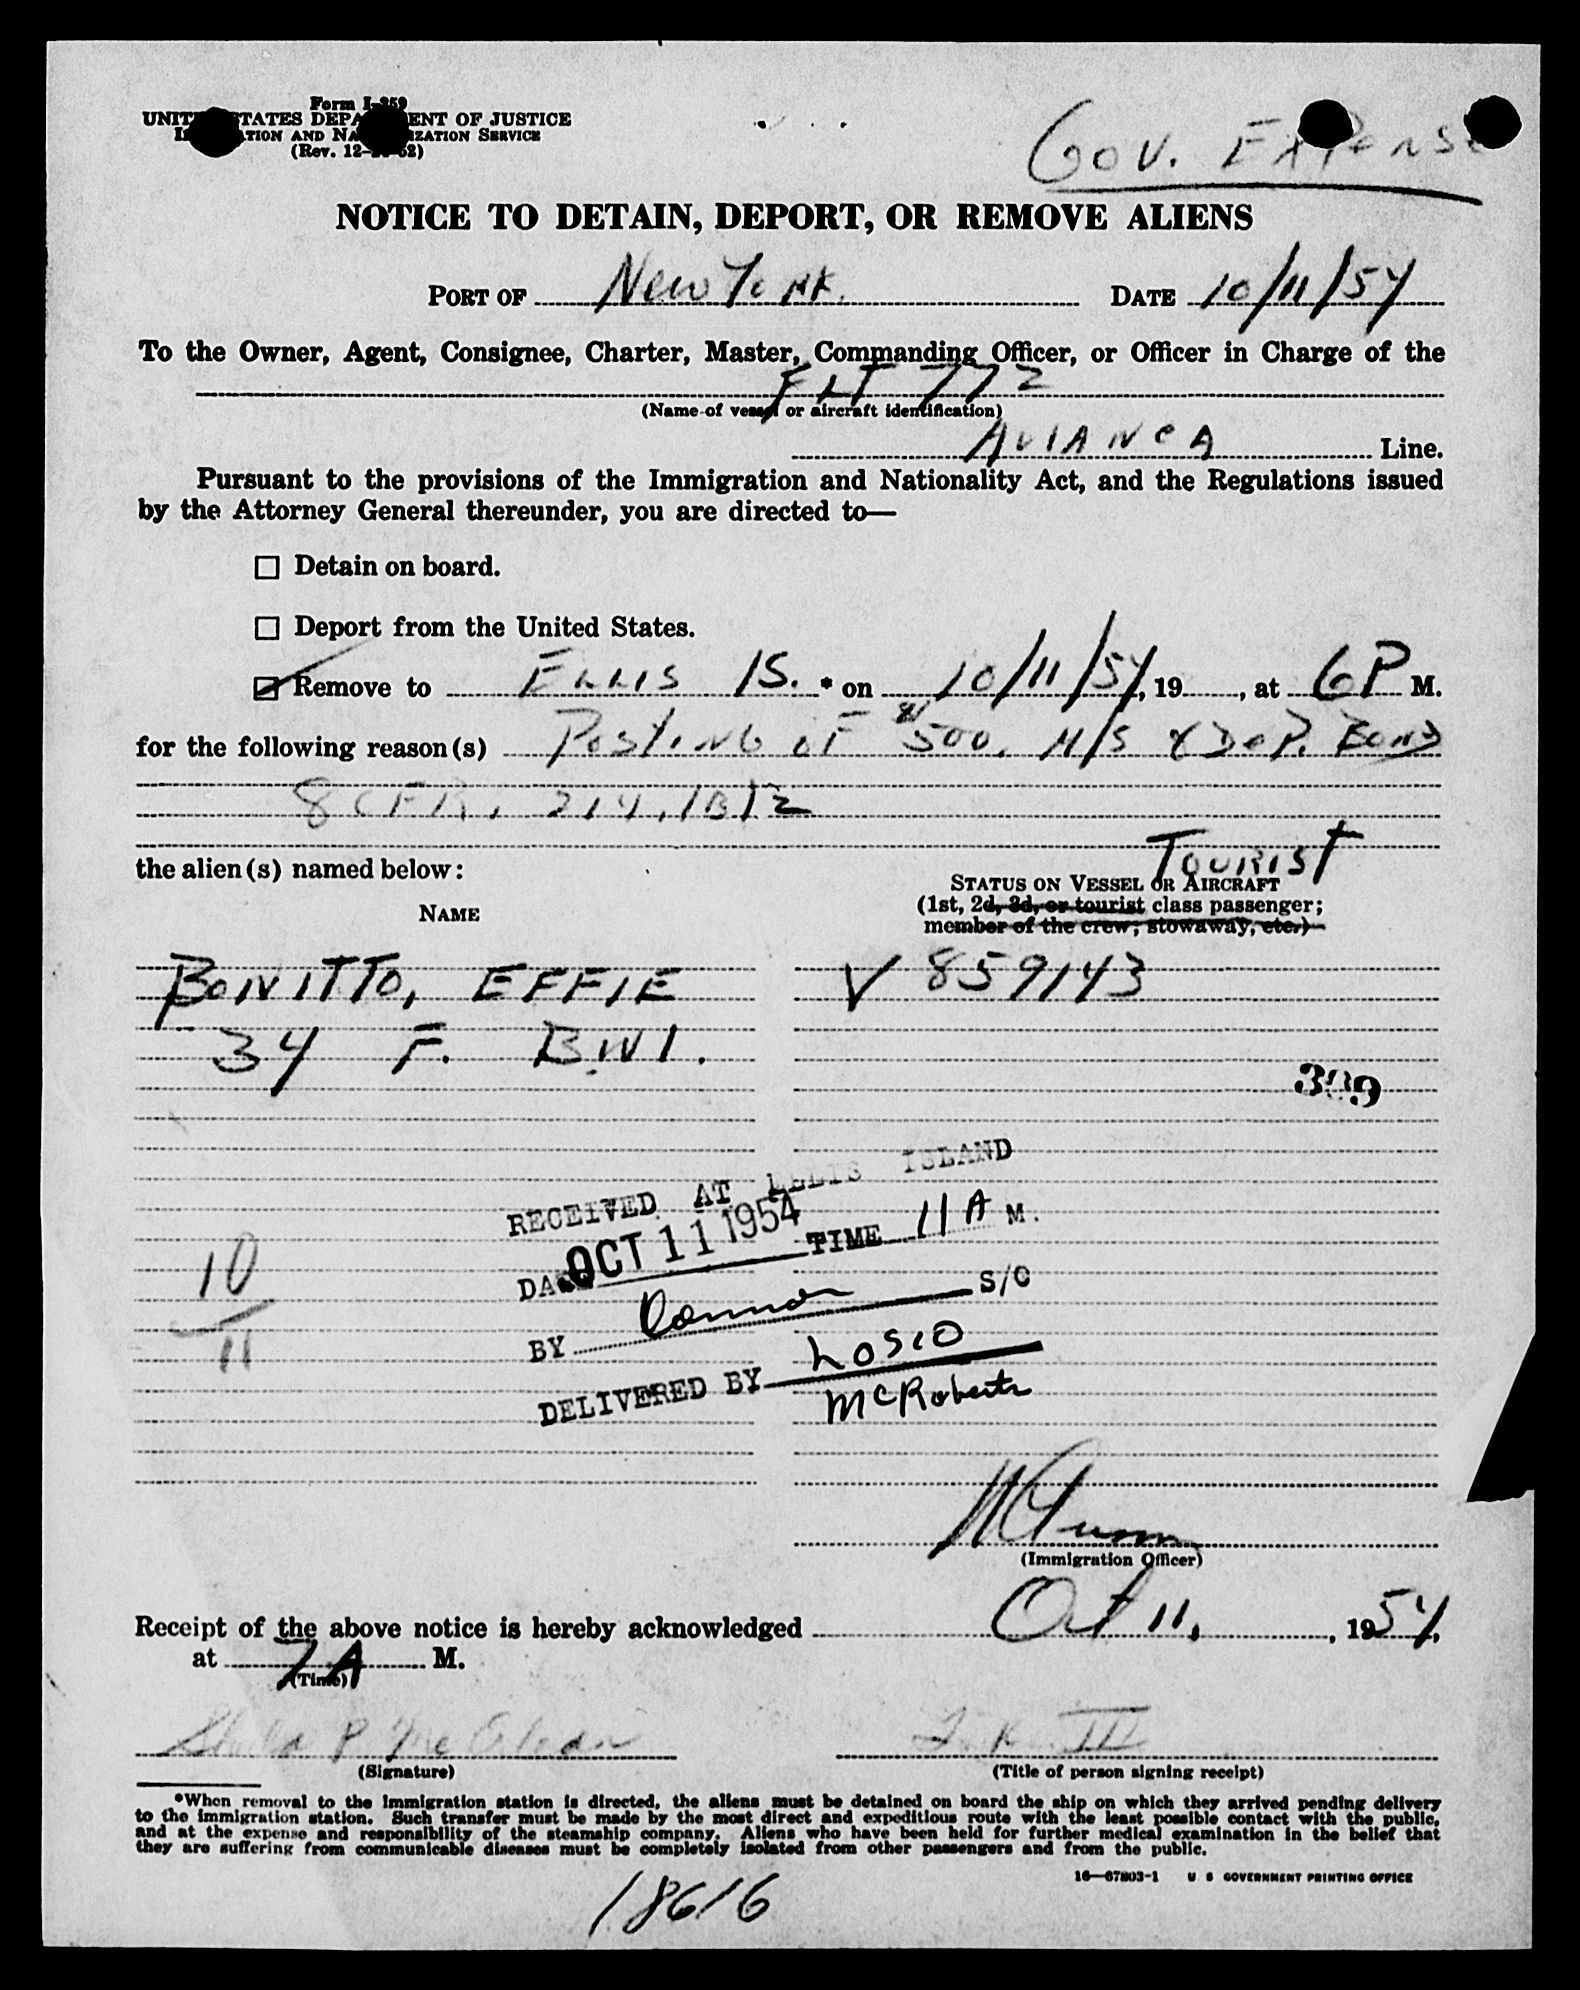 Form I-259
UNITED STATES DEPARTMENT OF JUSTICE
IMMIGRATION AND NATURALIZATION SERVICE
(Rev. 12- -52)
Gov. EXPENSE
NOTICE TO DETAIN, DEPORT, OR REMOVE ALIENS
PORT OF New York. DATE 10/11/54
To the Owner, Agent, Consignee, Charter, Master, Commanding Officer, or Officer in Charge of the
FLT 772
(Name of vessel or aircraft identification)
AVIANCA Line.
Pursuant to the provisions of the Immigration and Nationality Act, and the Regulations issued
by the Attorney General thereunder, you are directed to—
☐ Detain on board.
☐ Deport from the United States.
☑ Remove to ELLIS IS. * on 10/11/54, 19 , at 6P M.
for the following reason(s) POSTING OF $500. M/S & DEP. BOND
8 CFR. 214.1B12
the alien(s) named below:
TOURIST
NAME
STATUS ON VESSEL OR AIRCRAFT
(1st, 2d, 3d, or tourist class passenger;
member of the crew; stowaway, etc.)
BONITTO, EFFIE V 859143
34 F. BWI.
309
RECEIVED AT ELLIS ISLAND
DATE OCT 11 1954 TIME 11 A M.
BY Connor S/O
DELIVERED BY LOSCO
McRoberts
10
11
(Immigration Officer)
Receipt of the above notice is hereby acknowledged Oct 11, , 1954,
at 7 A M.
(Time)
P
III
(Signature) (Title of person signing receipt)
*When removal to the immigration station is directed, the aliens must be detained on board the ship on which they arrived pending delivery
to the immigration station. Such transfer must be made by the most direct and expeditious route with the least possible contact with the public,
and at the expense and responsibility of the steamship company. Aliens who have been held for further medical examination in the belief that
they are suffering from communicable diseases must be completely isolated from other passengers and from the public.
16—67803-1 U S GOVERNMENT PRINTING OFFICE
18616